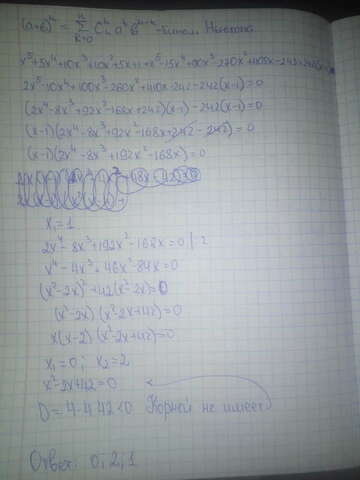 (a+b)ⁿ = Σ Cₙ aᵏ bⁿ⁻ᵏ - бином Ньютона
n
k=0
x⁵+5x⁴+10x³+10x²+5x+1+x⁵-15x⁴+90x³-270x²+405x-243
2x⁵-10x⁴+100x³-260x²+410x-242-242(x-1)=0
(2x⁴-8x³+92x²-168x+242)(x-1)-242(x-1)=0
(x-1)(2x⁴-8x³+92x²-168x+242-242)=0
(x-1)(2x⁴-8x³+192x²-168x)=0
x=1
2x⁴-8x³+192x²-168x=0 |:2
x⁴-4x³+46x²-84x=0
(x²-2x)²+42(x²-2x)=0
(x²-2x)(x²-2x+42)=0
x(x-2)(x²-2x+42)=0
x₁=0; x₂=2
x²-2x+42=0
D=4-4·42<0 Корней не имеет
Ответ: 0; 2; 1